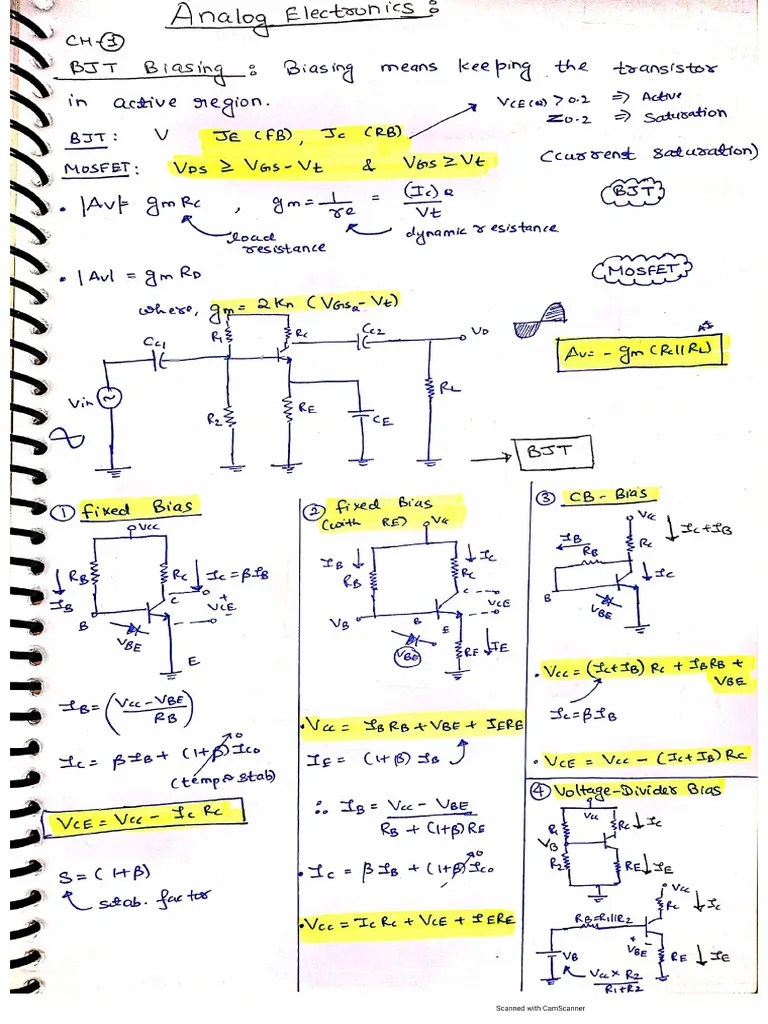 Analog Electronics :
CH-③
BJT Biasing : Biasing means keeping the transistor
in active region.
VCE(Q) > 0.2 ⇒ Active
≤0.2 ⇒ Saturation
BJT : V JE (FB), JC (RB)
(current saturation)
MOSFET : VDS ≥ VGS - Vt & VGS ≥ Vt
BJT
• |Av| = gm RC , gm = 1/re = (IC)Q/Vt
load resistance
dynamic resistance
MOSFET
• |Av| = gm RD
where, gm = 2Kn (VGSQ - Vt)
R1
RC
CC2
VO
CC1
Av = - gm (RC||RL)
Vin
R2
RE
CE
RL
BJT
① fixed Bias
VCC
RB
IB
RC
IC = βIB
C
+
VCE
B
VBE
-
E
IB = (VCC - VBE / RB)
IC = βIB + (1+β) ICO
0
(temp stab)
VCE = VCC - IC RC
S = (1+β)
stab. factor
② fixed Bias
(with RE)
VCC
IB
RB
RC
IC
C
VCE
VB
B
E
VBE
RE
IE
• VCC = IB RB + VBE + IE RE
IE = (1+β) IB
∴ IB = VCC - VBE / RB + (1+β) RE
• IC = βIB + (1+β) ICO
0
• VCC = IC RC + VCE + IE RE
③ CB - Bias
VCC
IC + IB
IB
RB
RC
IC
B
VBE
• VCC = (IC+IB) RC + IB RB +
VBE
IC = βIB
• VCE = VCC - (IC+IB) RC
④ Voltage-Divider Bias
VCC
R1
RC
IC
VB
R2
RE
IE
VCC
RC
IC
RB = R1||R2
+
VBE
-
RE
IE
VB
VCC × R2 / R1+R2
Scanned with CamScanner